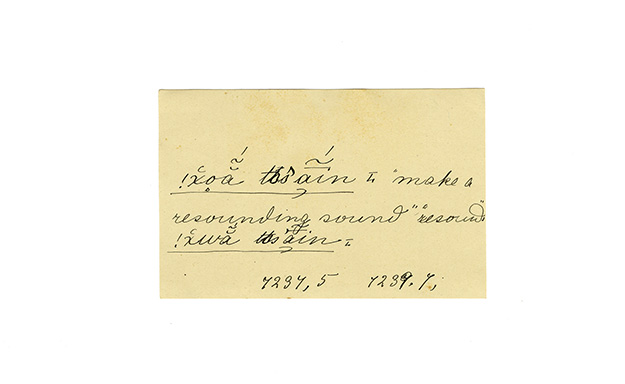 !x̆o̤ã́ tss'aín I "make a
resounding sound" "resound"
!x̆wã tss'aín I
7237, 5 7239. 7,